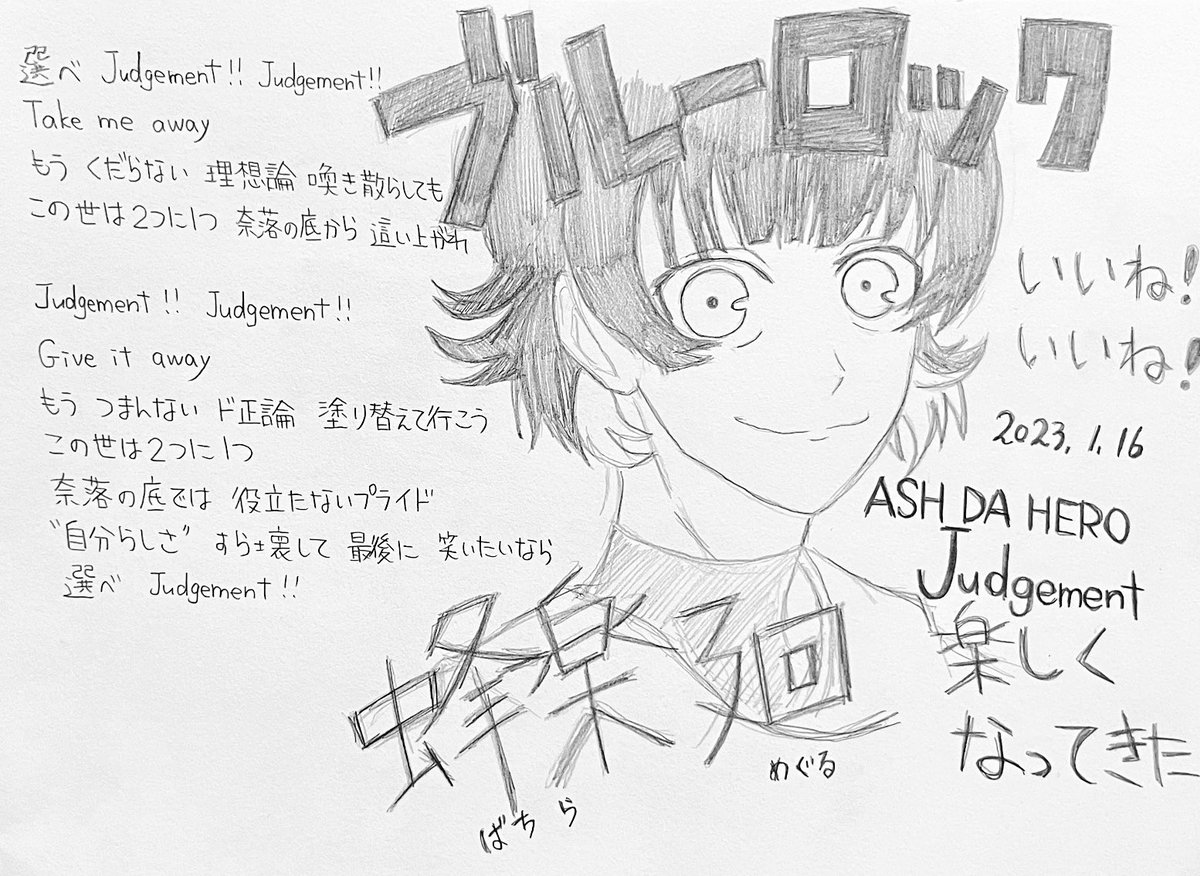 ブルーロック
選べ Judgement!! Judgement!!
Take me away
もう くだらない 理想論 喚き散らしても
この世は2つに1つ 奈落の底から 這い上がれ
Judgement!! Judgement!!
Give it away
もう つまんない ド正論 塗り替えて行こう
この世は2つに1つ
奈落の底では 役立たないプライド
"自分らしさ" すら壊して 最後に 笑いたいなら
選べ Judgement!!
いいね!
いいね!
2023.1.16
ASH DA HERO
Judgement
楽しく
なってきた
蜂楽廻
ばちら めぐる